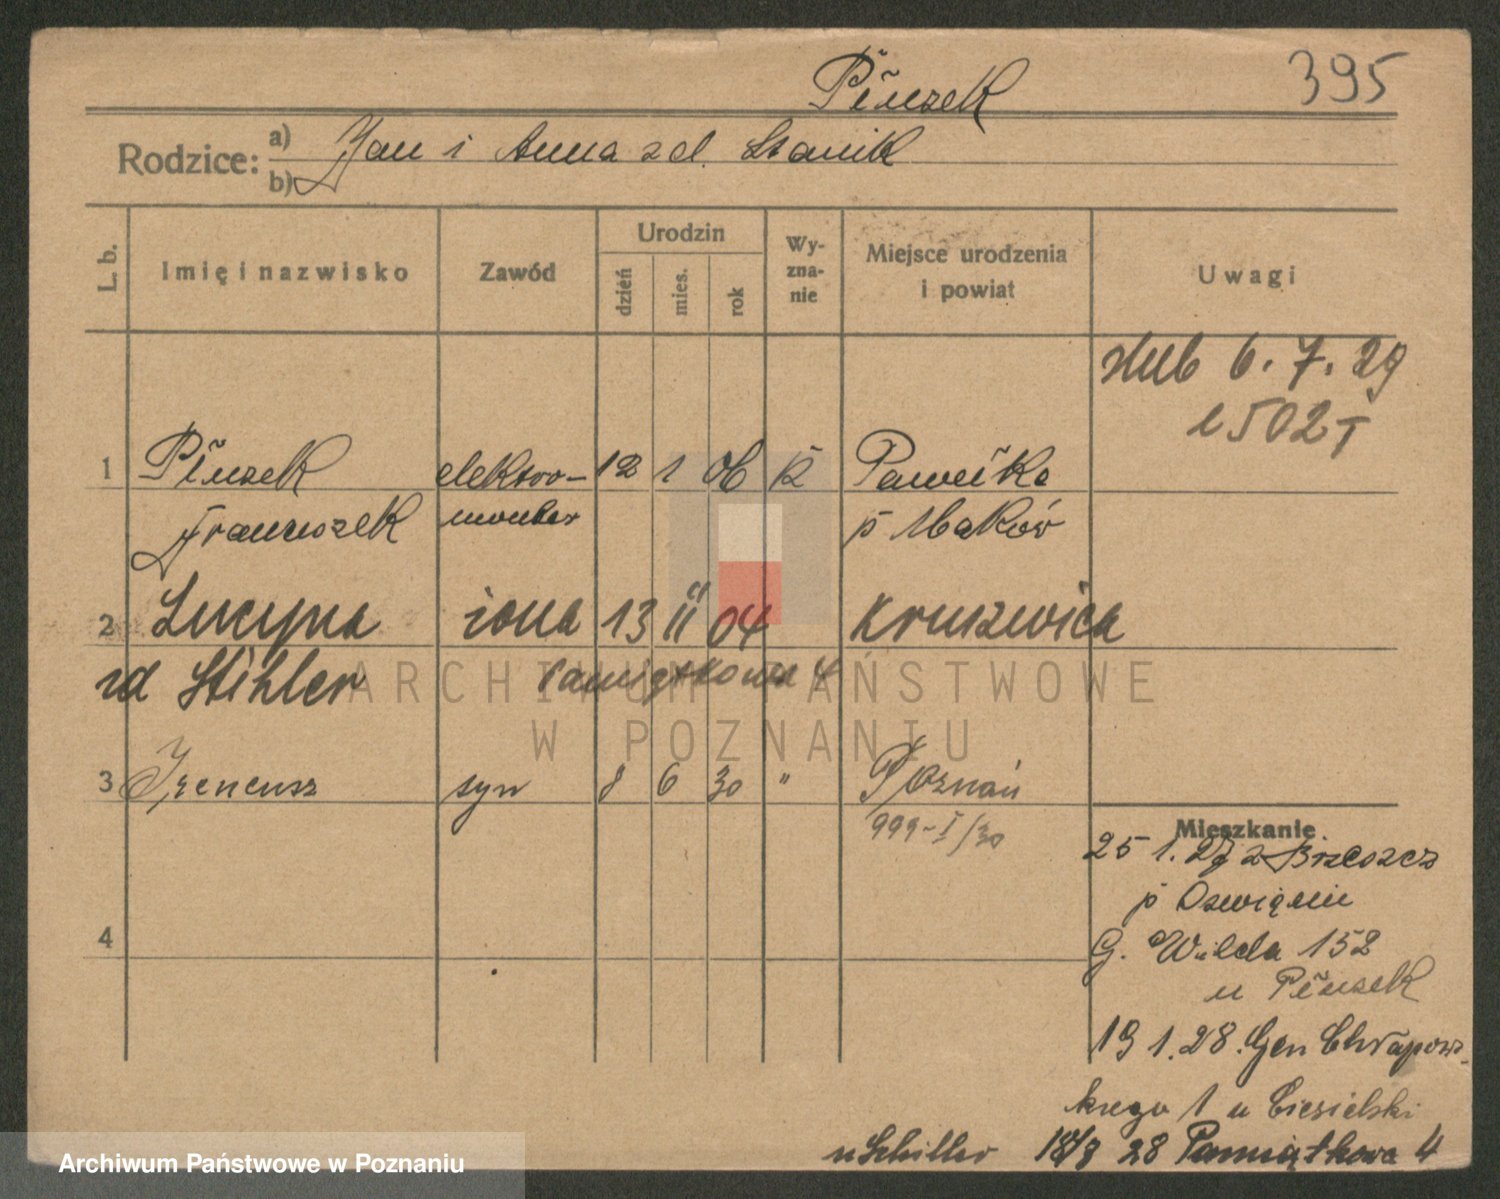 Piuszek 395
Rodzice: a) Jan i Anna zd. Stanik
b)
L. b. Imię i nazwisko Zawód Urodzin dzień mies. rok Wy-zna-nie Miejsce urodzenia i powiat Uwagi
ślub 6. 7. 29
502 I
1 Piuszek elektro- 12 1 06 K
Franciszek monter p Maków
2 Lucyna żona 13 II 04 Kruszwica
zd Stihler Pamiątkowa 4
ARCHIWUM PAŃSTWOWE
W POZNANIU
3 Ireneusz syn 8 6 30 " Poznań
999-I/30
Mieszkanie
25 1. 27 z Brzeszcz
p Oswięcim
4
G. Wilda 152
u Piuszek
19 1. 28. Gen Chłapows-
kiego 1 u Ciesielski
u Schiller 18/3 28 Pamiątkowa 4
Archiwum Państwowe w Poznaniu